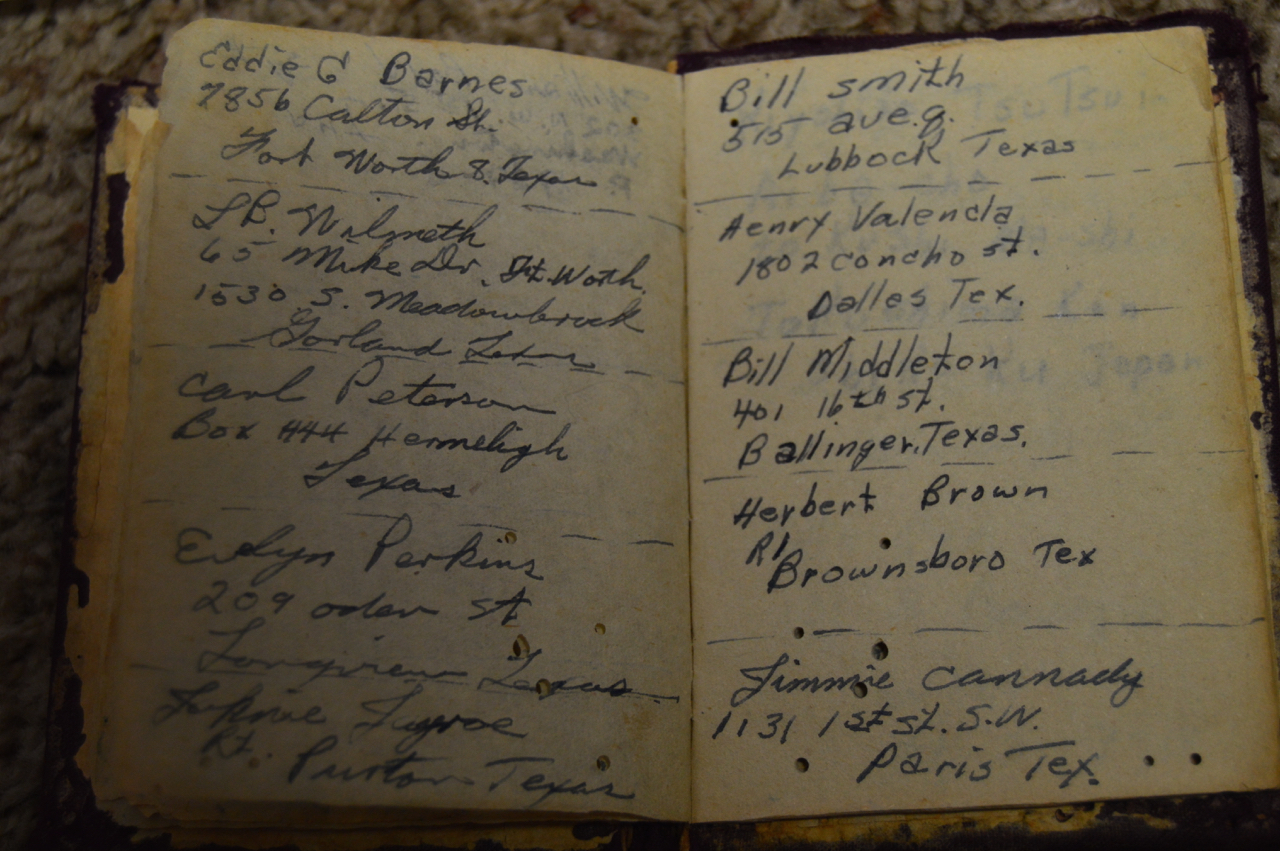 Eddie G Barnes
7856 Calton St.
Fort Worth 8. Texas
L.B. Wilmeth
65 Mike Dr. Ft. Worth.
1530 S. Meadowbrook
Garland Texas
Carl Peterson
Box 444 Hermeligh
Texas
Evelyn Perkins
209 oden St
Longview Texas
Rt.
Purton Texas
Bill Smith
515 ave.q.
Lubbock Texas
Henry Valencia
1802 Concho st.
Dalles Tex.
Bill Middleton
401 16th st.
Ballinger, Texas.
Herbert Brown
R1
Brownsboro Tex
Jimmie Cannady
1131 1st st. S.W.
Paris Tex.